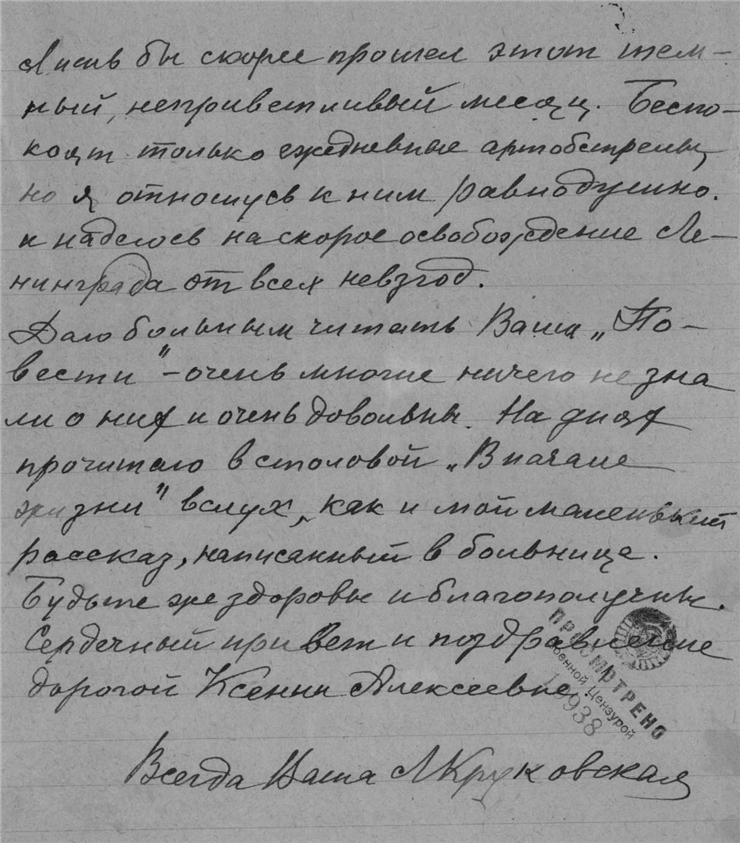 Лишь бы скорее прошел этот тем-
ный, неприветливый месяц. Беспо-
коят только ежедневные артобстрелы,
но я отношусь к ним равнодушно.
и надеюсь на скорое освобождение Ле-
нинграда от всех невзгод.
Даю больным читать Ваши „По-
вести" – очень многие ничего не зна
ли о них и очень довольны. На днях
прочитаю в столовой „В начале
жизни" вслух, как и мой маленький
рассказ, написанный в больнице.
Будьте же здоровы и благополучны.
Сердечный привет и поздравление
дорогой Ксении Алексеевне.
ПРОСМОТРЕНО
Военной Цензурой
938
Всегда Ваша Л Круковская